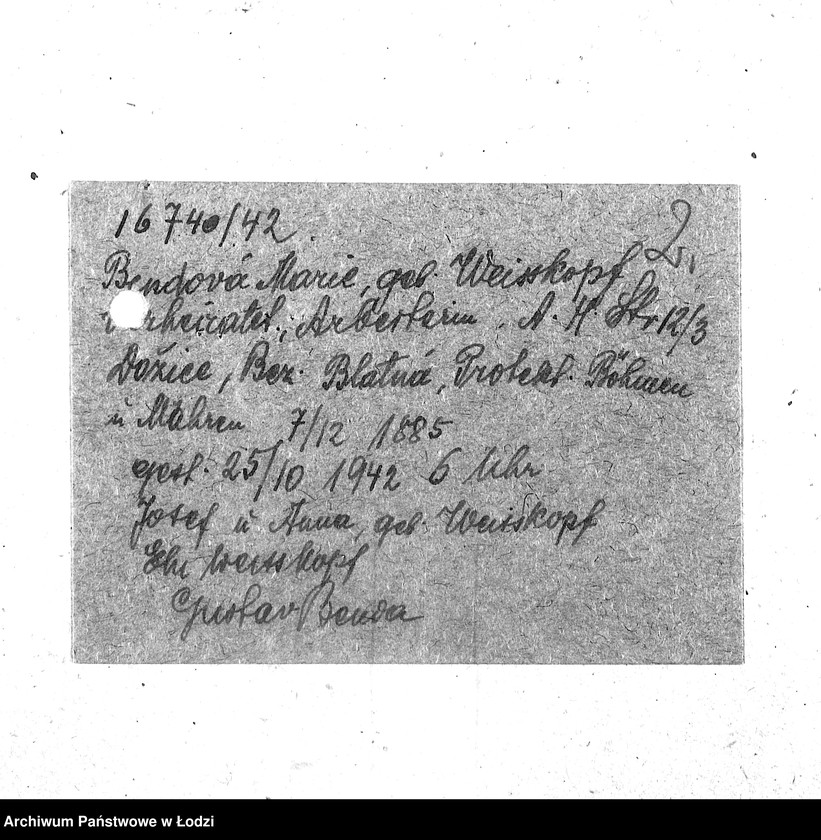 16740/42
2.
Bendová Marie, geb. Weisskopf
verheiratet, Arbeiterin, A. H. Str 12/3
Dožice, Bez. Blatná, Protekt. Böhmen
u Mähren 7/12 1885
gest. 25/10 1942 6 Uhr
Josef u Anna, geb. Weisskopf
Ehl Weisskopf
Gustav Benda
Archiwum Państwowe w Łodzi